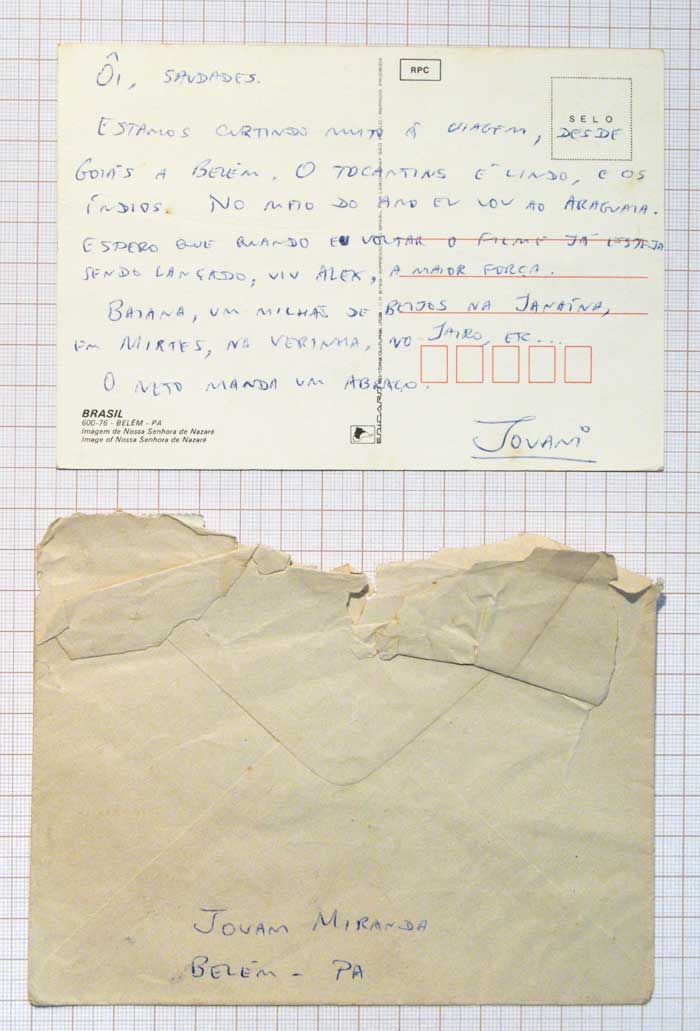 RPC
SELO
ÔI, SAUDADES.
ESTAMOS CURTINDO MUITO A VIAGEM, DESDE
GOIÁS A BELÉM. O TOCANTINS É LINDO, E OS
ÍNDIOS. NO MEIO DO ANO EU VOU AO ARAGUAIA.
ESPERO QUE QUANDO EU VOLTAR O FILME JÁ ESTEJA
SENDO LANÇADO, VIU ALEX, A MAIOR FORÇA.
BAIANA, UM MILHÃO DE BEIJOS NA JANAÍNA,
EM MIRTES, NA VERINHA, NO JAIRO, ETC...
O NETO MANDA UM ABRAÇO.
JOVANI
BRASIL
600-76 - BELÉM - PA
Imagem de Nossa Senhora de Nazaré
Image of Nossa Senhora de Nazaré
EDICARD
JOVANI MIRANDA
BELÉM - PA